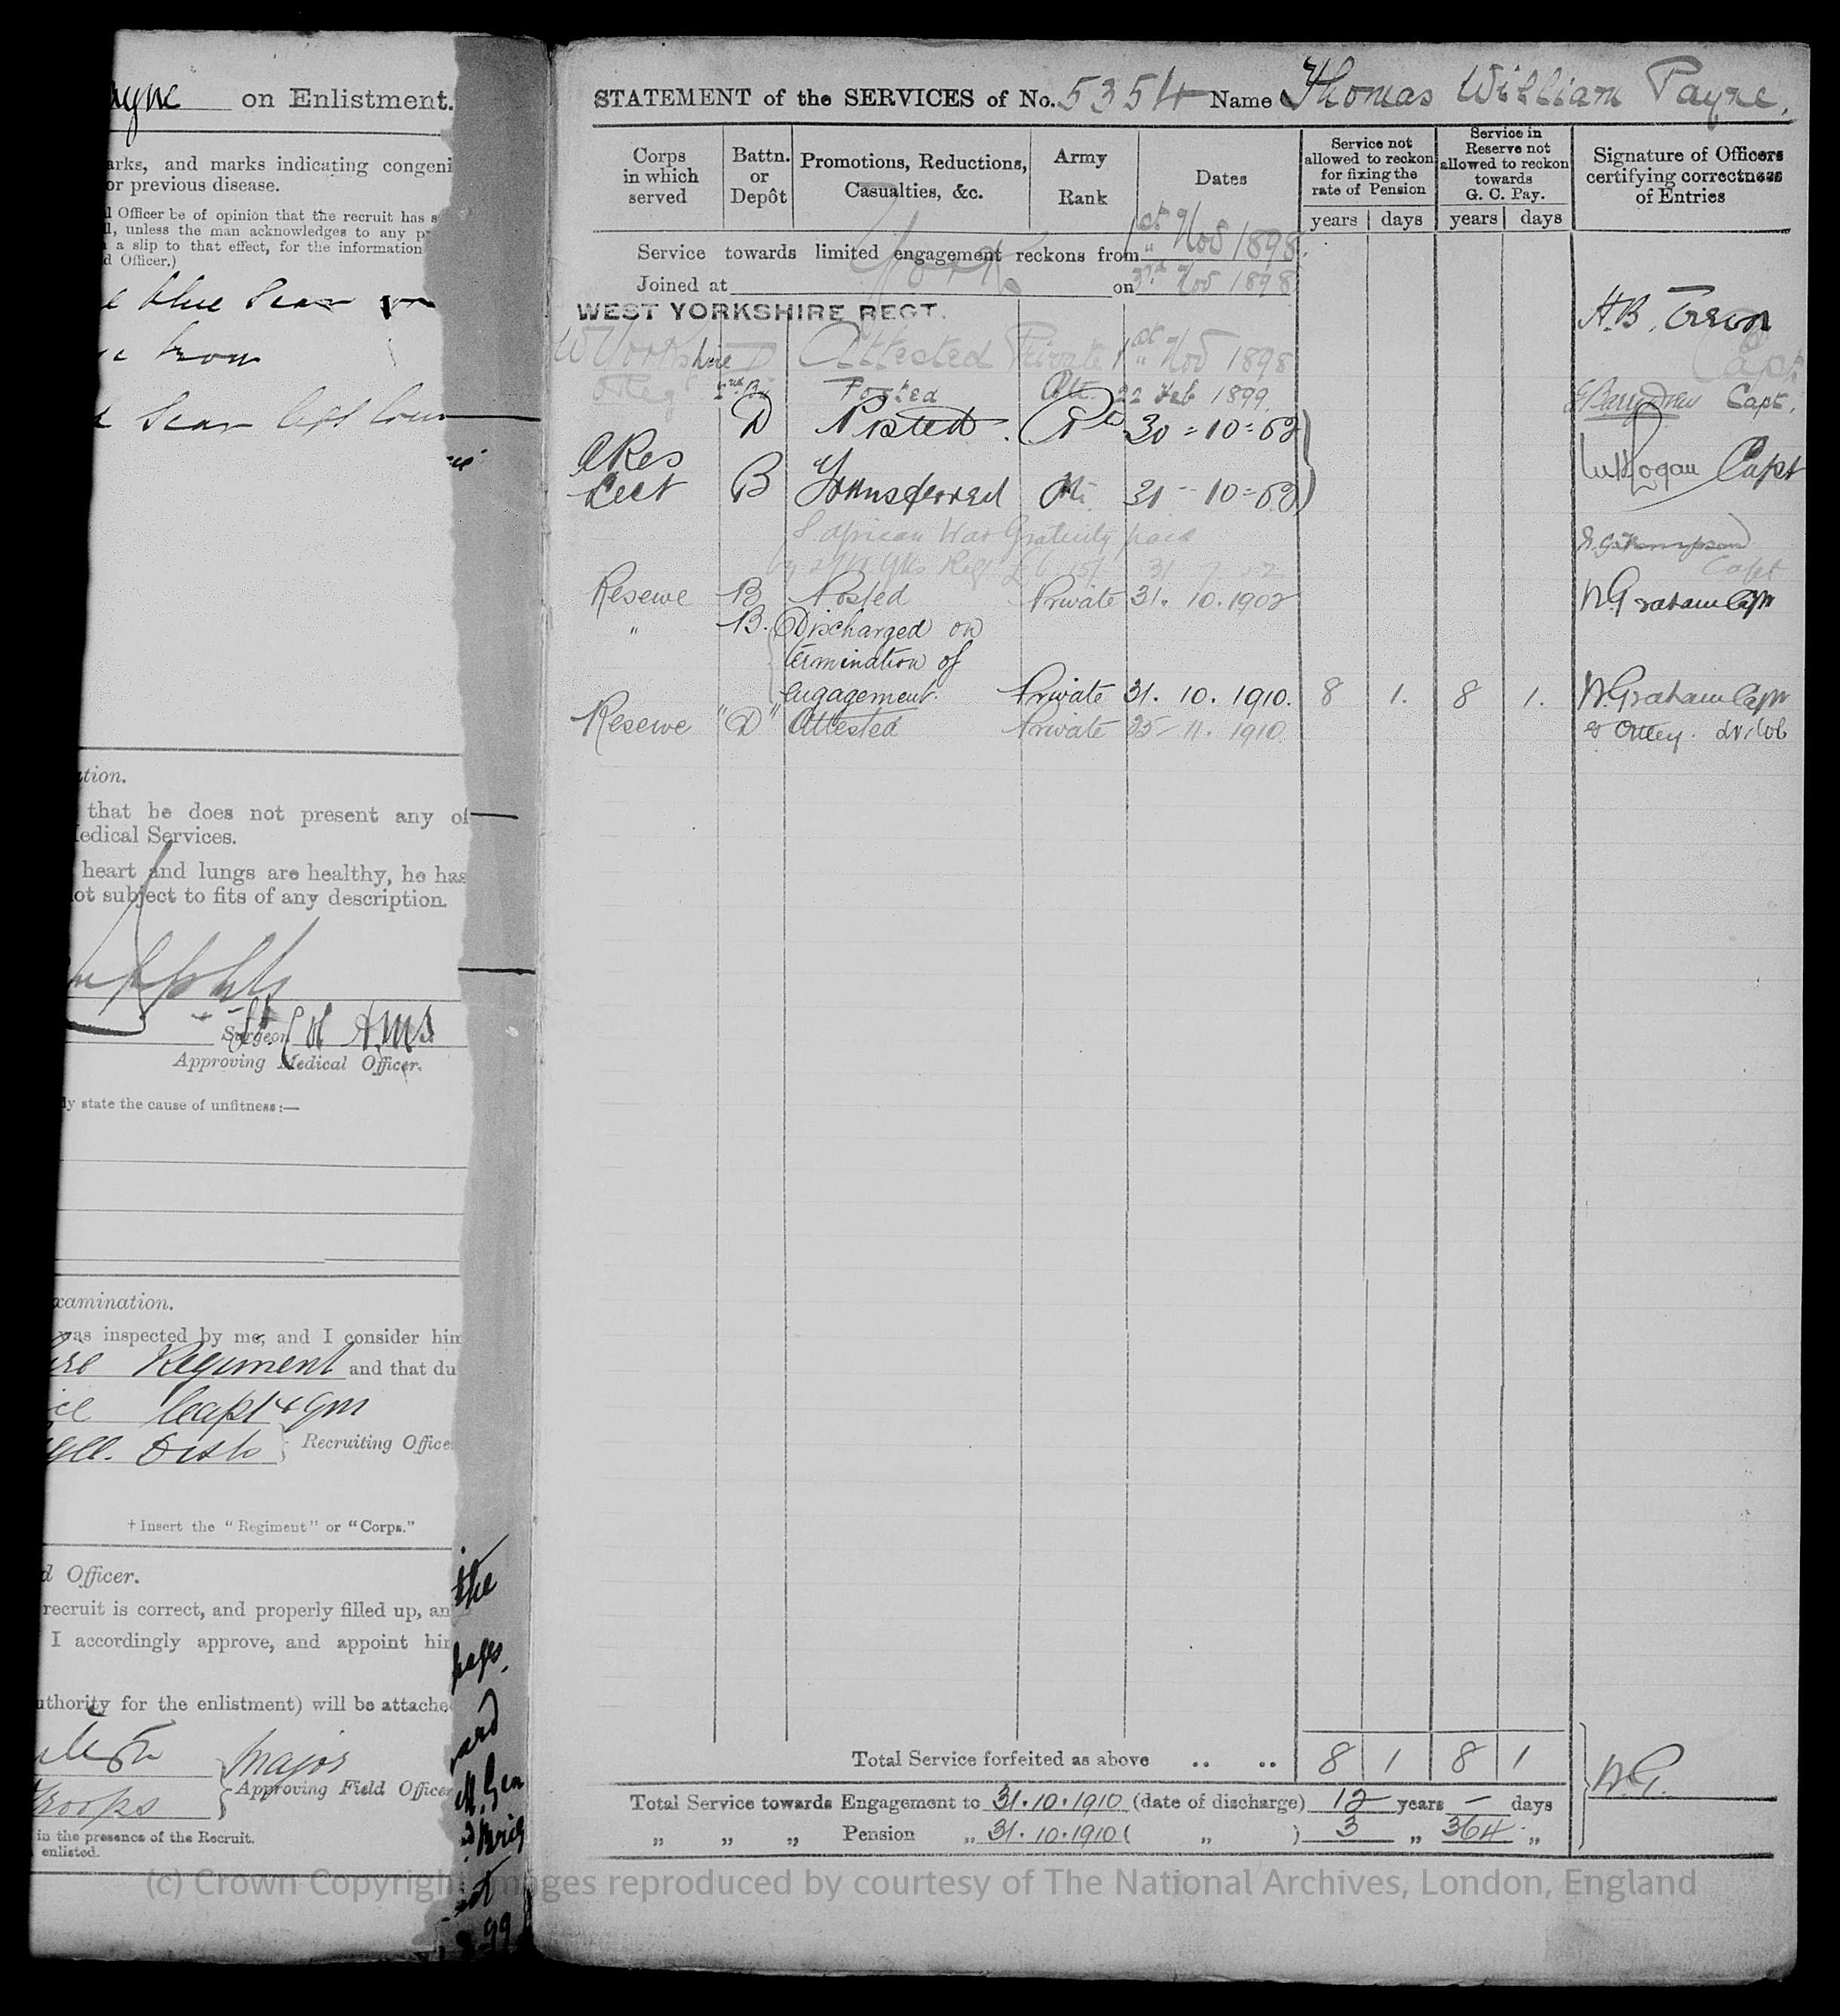 ayne on Enlistment.
arks, and marks indicating congeni
or previous disease.
l Officer be of opinion that the recruit has s
l, unless the man acknowledges to any p
a slip to that effect, for the information
d Officer.)
blue Scar
brow
Scar left
ation.
that he does not present any of
Medical Services.
heart and lungs are healthy, he has
ot subject to fits of any description.
Surgeon Lt Col AMS
Approving Medical Officer.
ly state the cause of unfitness:—
xamination.
was inspected by me, and I consider him
ire Regiment and that du
Capt & Qm
Dist. Recruiting Office
† Insert the "Regiment" or "Corps."
d Officer.
recruit is correct, and properly filled up, an
I accordingly approve, and appoint hi
uthority for the enlistment) will be attache
Major
Troops Approving Field Officer
in the presence of the Recruit.
enlisted.
the
pages.
99
STATEMENT of the SERVICES of No. 5354 Name Thomas William Payne.
Corps in which served
Battn. or Depôt
Promotions, Reductions, Casualties, &c.
Army Rank
Dates
Service not allowed to reckon for fixing the rate of Pension
Service in Reserve not allowed to reckon towards G. C. Pay.
Signature of Officers certifying correctness of Entries
years days years days
Service towards limited engagement reckons from 1st Nov 1898.
Joined at York on 3rd Nov 1898
WEST YORKSHIRE REGT.
W Yorkshire D Attested Private 1st Nov 1898 Capt
Regt 2nd Bn Posted Pte 22 Feb 1899 Capt.
D Posted. Pte 30=10=02
A Res
Sect B Transferred Pte 31-10=02 Capt
S. African War Gratuity paid
by Yks Regt £6 31 7 02 Capt
Reserve B Posted Private 31.10.1902 N Graham Capt
" B. Discharged on
termination of
engagement. Private 31.10.1910. 8 1. 8 1. N Graham Capt
Reserve "D" Attested Private 25-11.1910
Total Service forfeited as above .. .. 8 1 8 1
Total Service towards Engagement to 31.10.1910 (date of discharge) 12 years - days
" " " Pension " 31.10.1910 ( " ) 3 " 364 "
N.G.
(c) Crown Copyright Images reproduced by courtesy of The National Archives, London, England